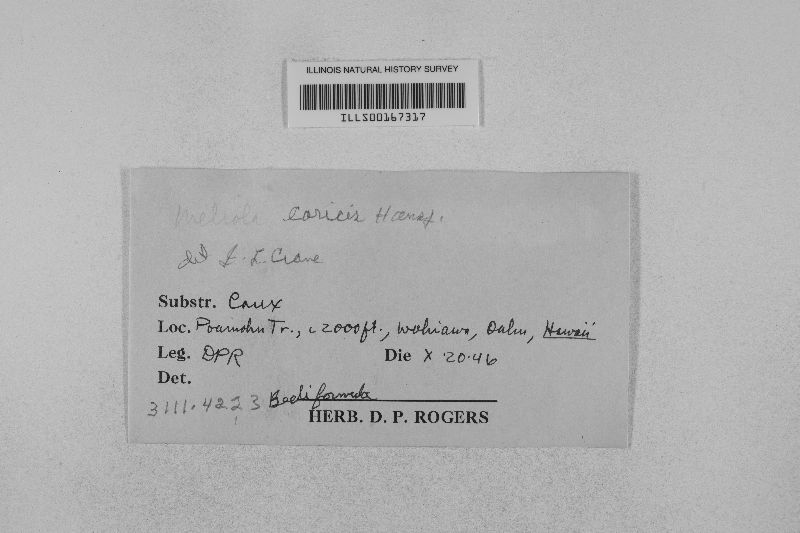 ILLINOIS NATURAL HISTORY SURVEY
ILLS00167317
Meliola caricis Hansf.
det J. L. Crane
Substr. Carex
Loc. Poamoho Tr., c 2000 ft., Wahiawa, Oahu, Hawaii
Leg. DPR Die X·20·46
Det.
3111.4223
HERB. D. P. ROGERS